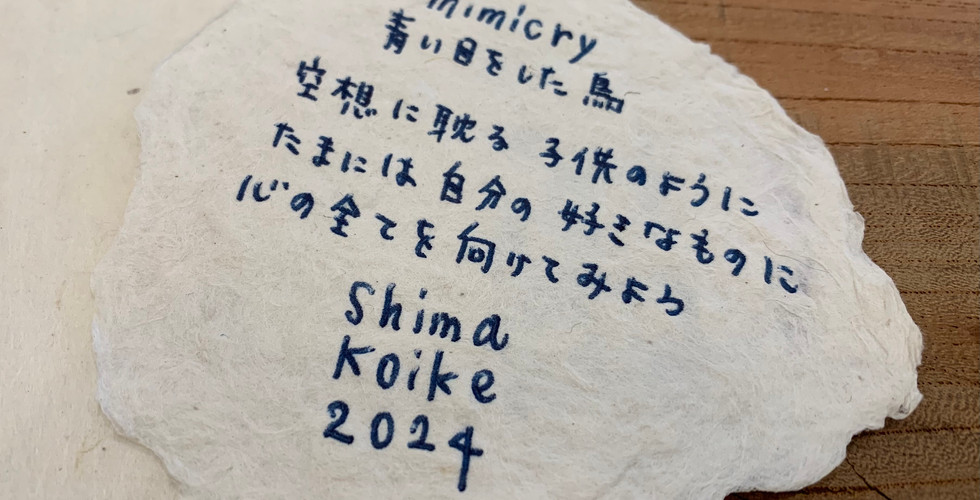 mimicry
青い目をした鳥
空想に耽る子供のように
たまには自分の好きなものに
心の全てを向けてみよう
Shima
Koike
2024